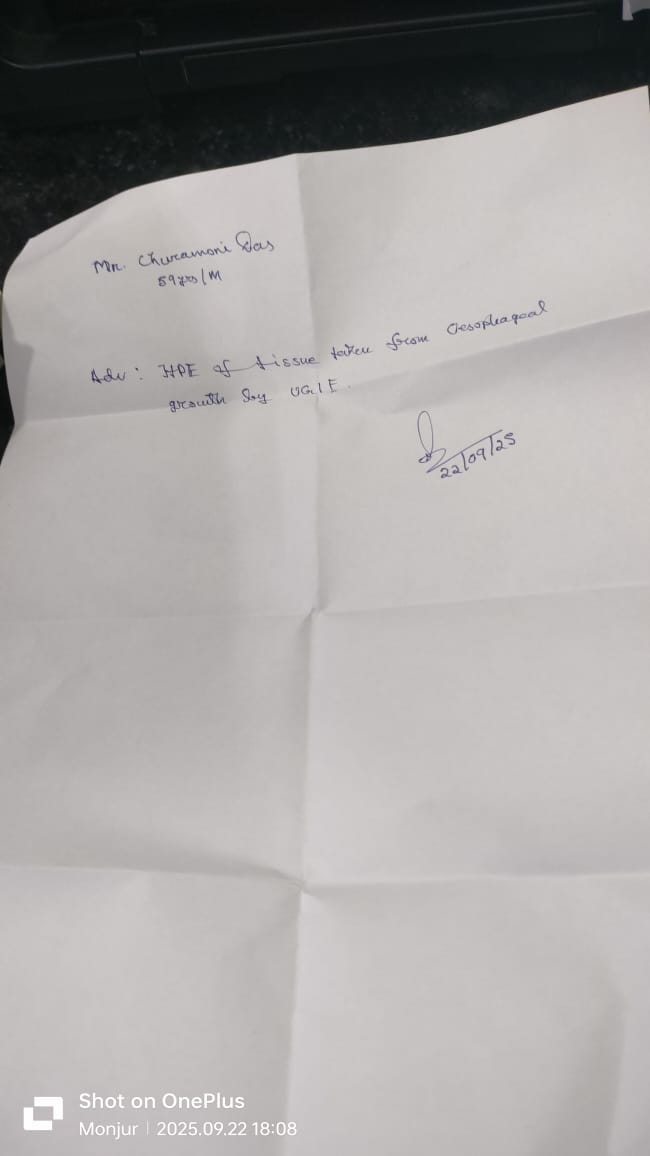 Mr. Churamoni Das
59 yrs/M
Adv: HPE of tissue taken from Oesophageal
growth by UGIE.
22/09/25
Shot on OnePlus
Monjur | 2025.09.22 18:08